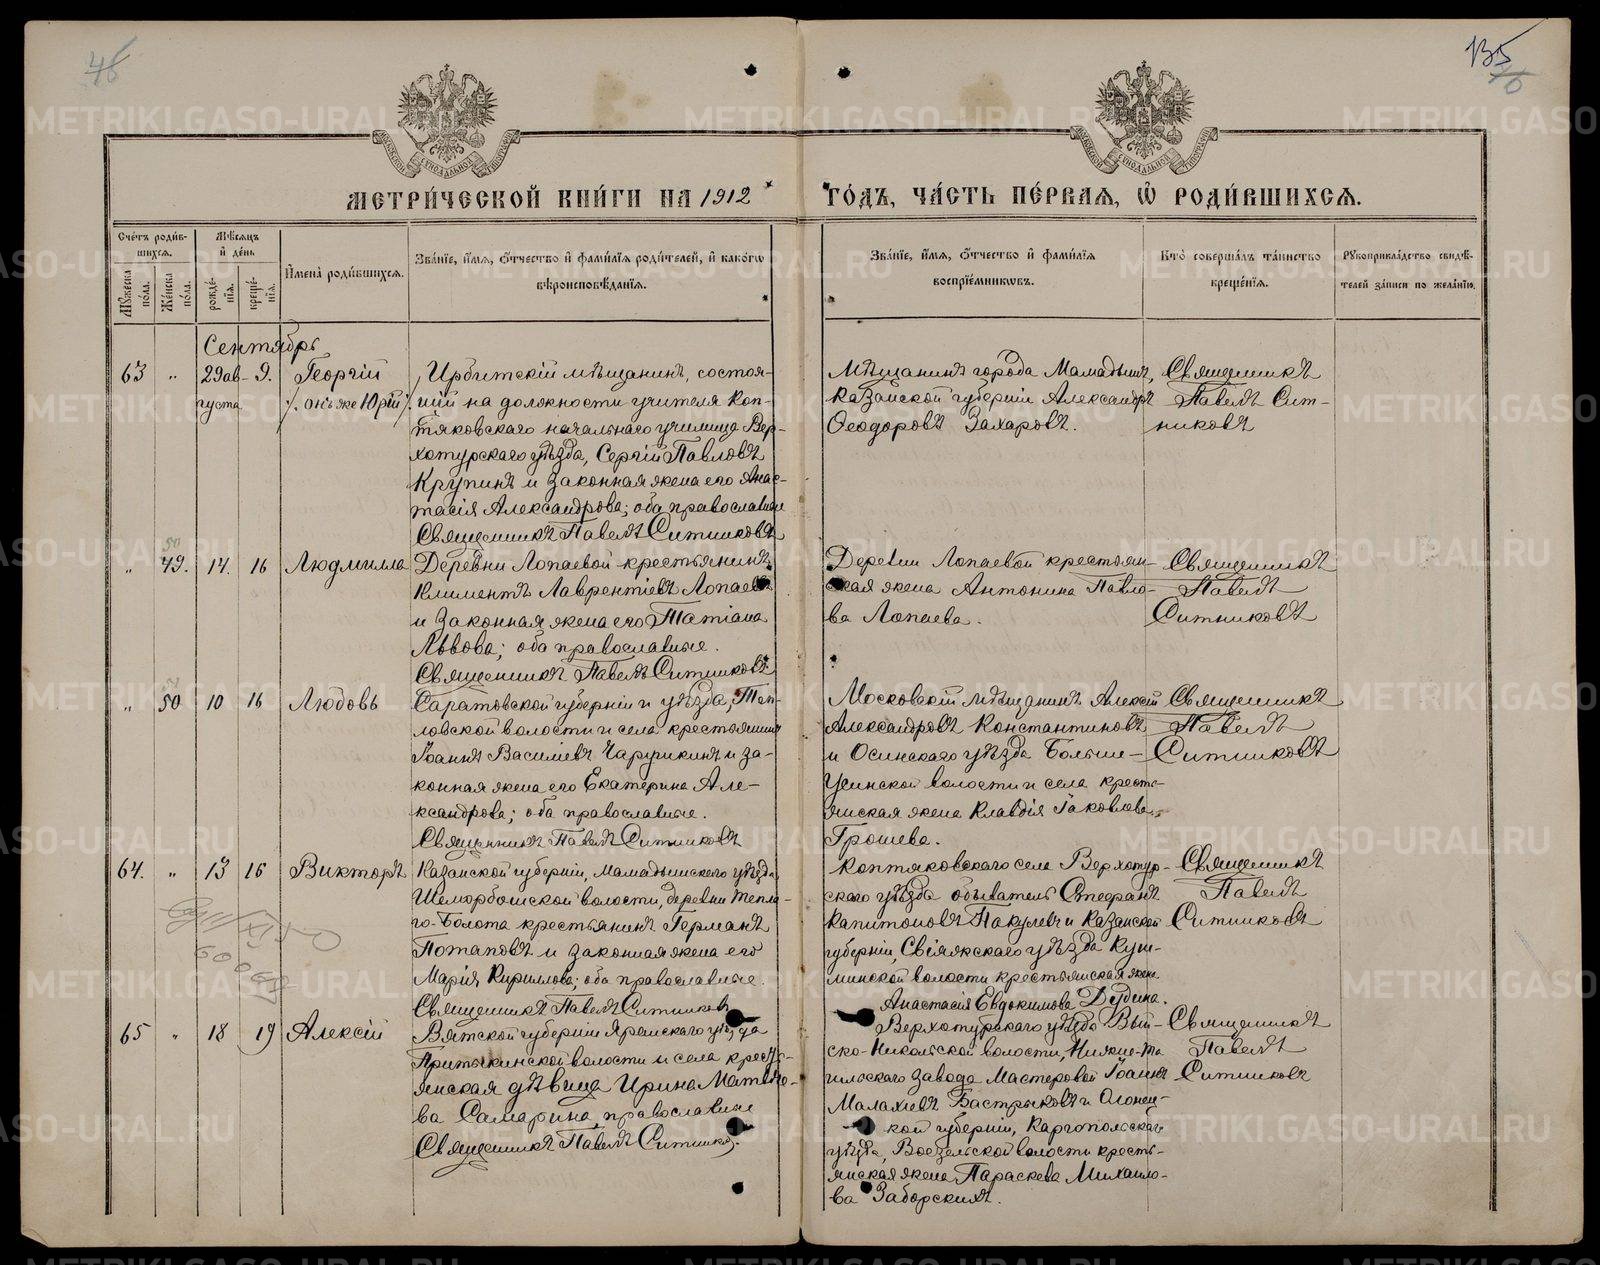 46
135
46
МЕТРИ́ЧЕСКОЙ КНИ́ГИ НА 1912
ГО́ДЪ, ЧА́СТЬ ПЕ́РВАЯ, Ѡ҆ РОДИ́ВШИХСЯ.
Сче́тъ роди́вшихся.
Му́жеска по́ла.
Же́нска по́ла.
Мѣ́сяцъ и҆ де́нь
рожде́нїя.
креще́нїя.
И҆мена̀ роди́вшихся.
Зва́нїе, и҆́мя, ѻ҆́тчество и҆ фами́лїя роди́телей, и҆ како́гѡ
вѣроисповѣ́данїя.
Зва́нїе, и҆́мя, ѻ҆́тчество и҆ фами́лїя
воспрїе́мниковъ.
Кто̀ соверша́лъ та́инство
креще́нїя.
Рꙋкоприкла́дство свидѣ́-
телей за́писи по жела́нїю.
Сентябрь
63 " 29 ав- 9. Георгій
густа /. онъ же Юрій/.
Ирбитскій мѣщанинъ, состоя-
щій на должности учителя Коп-
тяковскаго начальнаго училища Вер-
хотурскаго уѣзда, Сергій Павловъ
Крупинъ и законная жена его Анас-
тасія Александрова; оба православные
Священникъ Павелъ Ситниковъ
Мѣщанинъ города Мамадыша,
Казанской губерніи Александръ
Ѳеодоровъ Захаровъ.
Священникъ
Павелъ Сит-
никовъ
50
" 49. 14. 16 Людмилла
Деревни Лопаевой крестьянинъ
Климентъ Лаврентіевъ Лопаевъ
и законная жена его Татіана
Львова; оба православные.
Священникъ Павелъ Ситниковъ
Деревни Лопаевой крестьян-
ская жена Антонина Павло-
ва Лопаева.
Священникъ
Павелъ
Ситниковъ
" 50 10 16 Любовь
Саратовской губерніи и уѣзда, Теп-
ловской волости и села крестьянинъ
Іоаннъ Василіевъ Чарушкинъ и за-
конная жена его Екатерина Але-
ксандрова; оба православные.
Священникъ Павелъ Ситниковъ
Московскій мѣщанинъ Алексій
Александровъ Константиновъ
и Осинскаго уѣзда Больше-
Усинской волости и села кресть-
янская жена Клавдія Іаковлева
Грошева.
Священникъ
Павелъ
Ситниковъ
64. " 13 16 Викторъ
Казанской губерніи, Мамадышскаго уѣзда
Шеморбашской волости, деревни Тепла-
го-Болота крестьянинъ Германъ
Потаповъ и законная жена его
Марія Кирилова; оба православные.
Священникъ Павелъ Ситниковъ
Коптяковскаго села Верхотур-
скаго уѣзда обыватель Стефанъ
Капитоновъ Пакулевъ и Казанской
губерніи, Свіяжскаго уѣзда Куш-
минской волости крестьянская жена
Анастасія Евдокимова Дедина.
Священникъ
Павелъ
Ситниковъ
65 " 18 19 Алексій
Вятской губерніи Яранскаго уѣзда
Притыкинской волости и села кресть-
янская дѣвица Ирина Матвѣе-
ва Самарина, православные
Священникъ Павелъ Ситников.
Верхотурскаго уѣзда Вый-
ско-Никольской волости, Нижне-Та
гильскаго завода Мастеровой Іоаннъ
Малахіевъ Бастрыковъ и Олонец-
кой губерніи, Каргопольскаго
уѣзда, волости кресть-
янская жена Параскева Михаило-
ва Заборскихъ.
Священникъ
Павелъ
Ситниковъ